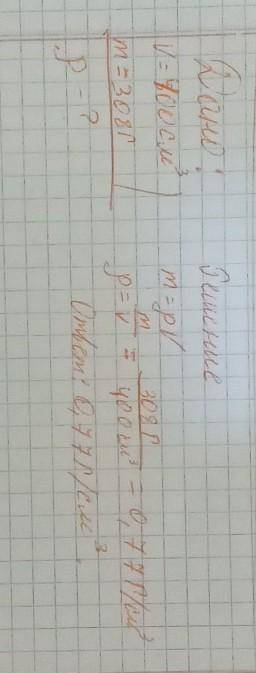 Дано:
V = 400 см³
m = 308 г
ρ - ?
Решение
m = ρV
ρ = m/V = 308 г/400 см³ = 0,77 г/см³
Ответ: 0,77 г/см³.